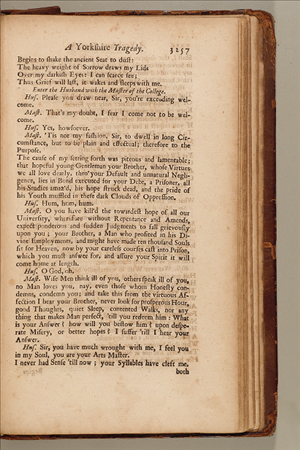 A Yorkshire Tragedy. 3257
Begins to shake the ancient Seat to dust:
The heavy weight of Sorrow draws my Lids
Over my darkish Eyes: I can scarce see;
Thus Grief will last, it wakes and sleeps with me.
Enter the Husband with the Master of the College.
Hus. Please you draw near, Sir, you're exceeding wel-
come.
Mast. That's my doubt, I fear I come not to be wel-
come.
Hus. Yes, howsoever.
Mast. 'Tis not my fashion, Sir, to dwell in long Cir-
cumstance, but to be plain and effectual; therefore to the
Purpose.
The cause of my setting forth was piteous and lamentable;
that hopeful young Gentleman your Brother, whose Virtues
we all love dearly, thro' your Default and unnatural Negli-
gence, lies in Bond executed for your Debt, a Prisoner, all
his Studies amaz'd, his hope struck dead, and the pride of
his Youth muffled in these dark Clouds of Oppression.
Hus. Hum, hum, hum.
Mast. O you have kill'd the towardest hope of all our
University, wherefore without Repentance and Amends,
expect ponderous and sudden Judgments to fall grievously
upon you; your Brother, a Man who profited in his Di-
vine Employments, and might have made ten thousand Souls
fit for Heaven, now by your careless courses cast into Prison,
which you must answer for, and assure your Spirit it will
come home at length.
Hus. O God, oh.
Mast. Wise Men think ill of you, others speak ill of you,
no Man loves you, nay, even those whom Honesty con-
demns, condemn you; and take this from the virtuous Af-
fection I bear your Brother, never look for prosperous Hour,
good Thoughts, quiet Sleep, contented Walks, nor any
thing that makes Man perfect, 'till you redeem him: What
is your Answer? how will you bestow him? upon despe-
rate Misery, or better hopes? I suffer 'till I hear your
Answer.
Hus. Sir, you have much wrought with me, I feel you
in my Soul, you are your Arts Master.
I never had Sense 'till now; your Syllables have cleft me,
both